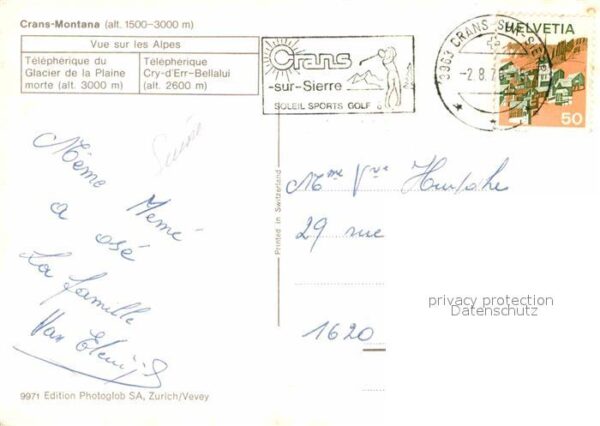 Crans-Montana (alt. 1500-3000 m)
Vue sur les Alpes
Téléphérique du
Glacier de la Plaine
morte (alt. 3000 m)
Téléphérique
Cry-d'Err-Bellalui
(alt. 2600 m)
Crans
-sur-Sierre
SOLEIL SPORTS GOLF
3963 CRANS
-2.8.7
HELVETIA
50
Suisse
Même Mémé
a osé
La famille
Van
Printed in Switzerland
Mme Vve
29 rue
1620
privacy protection
Datenschutz
9971 Edition Photoglob SA, Zurich/Vevey